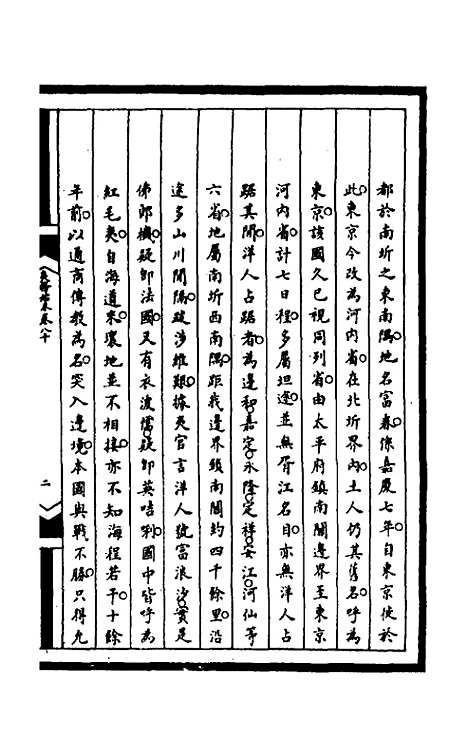 都於南圻之東南隅。地名富春。係嘉慶七年。自東京徙於
此。東京今改為河內省。在北圻界內。土人仍其舊名。呼為
東京。該國久已視同列省。由太平府鎮南關邊界至東京
河內省。計七日程。多屬坦途。並無胥江名目。亦無洋人占
踞其間。洋人占踞者。為邊和。嘉定。永隆。定祥。安江。河仙等
六省。地屬南圻西南隅。距我邊界鎮南關約四千餘里。沿
途多山川間隔。跋涉維艱。據夷官言洋人號富浪沙。實是
佛郎機。疑即法國。又有衣波儒。疑即英咭唎。國中皆呼為
紅毛夷。自海道來。壤地並不相接。亦不知海程若干。十餘
年前。以通商傳教為名。突入邊境。本國與戰不勝。只得允
二